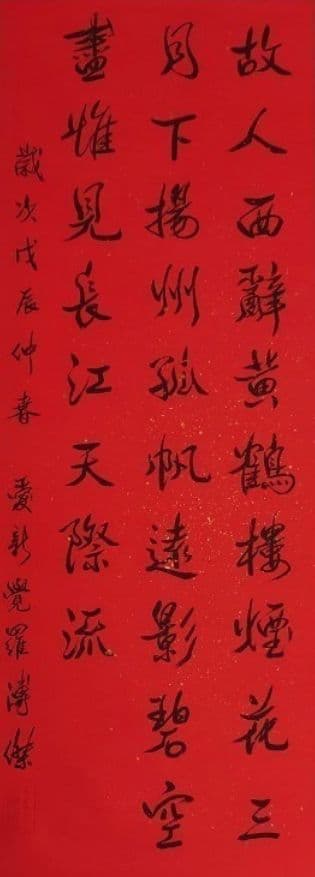 故人西辭黃鶴樓煙花三
月下揚州孤帆遠影碧空
盡惟見長江天際流
歲次戊辰仲春 愛新覺羅溥傑